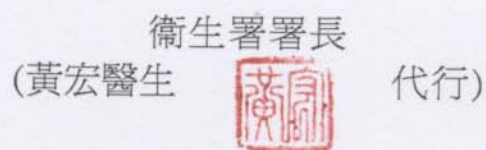 衞生署署長
(黃宏醫生 黃宏 代行)